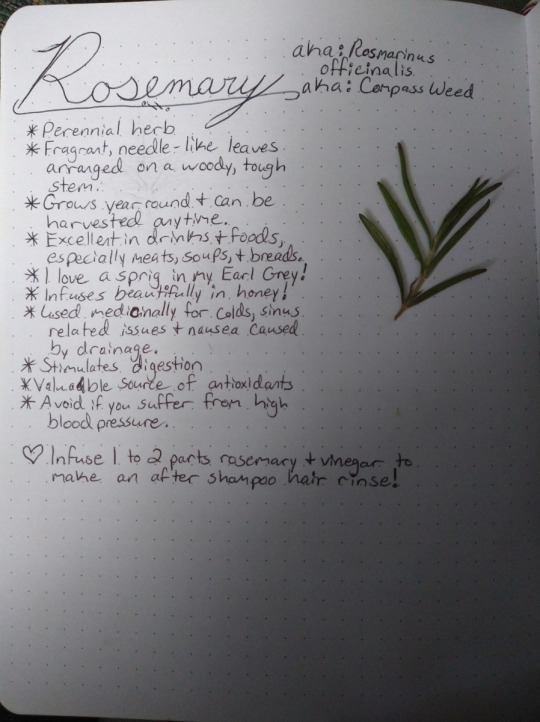 Rosemary
aka: Rosmarinus
officinalis
aka: Compass Weed
* Perennial herb
* Fragrant, needle-like leaves
arranged on a woody, tough
stem.
* Grows year round + can be
harvested anytime.
* Excellent in drinks + foods,
especially meats, soups, + breads.
* I love a sprig in my Earl Grey!
* Infuses beautifully in honey!
* Used medicinally for colds, sinus
related issues + nausea caused
by drainage.
* Stimulates digestion
* Valuable source of antioxidants
* Avoid if you suffer from high
blood pressure.
♡ Infuse 1 to 2 parts rosemary + vinegar to
make an after shampoo hair rinse!